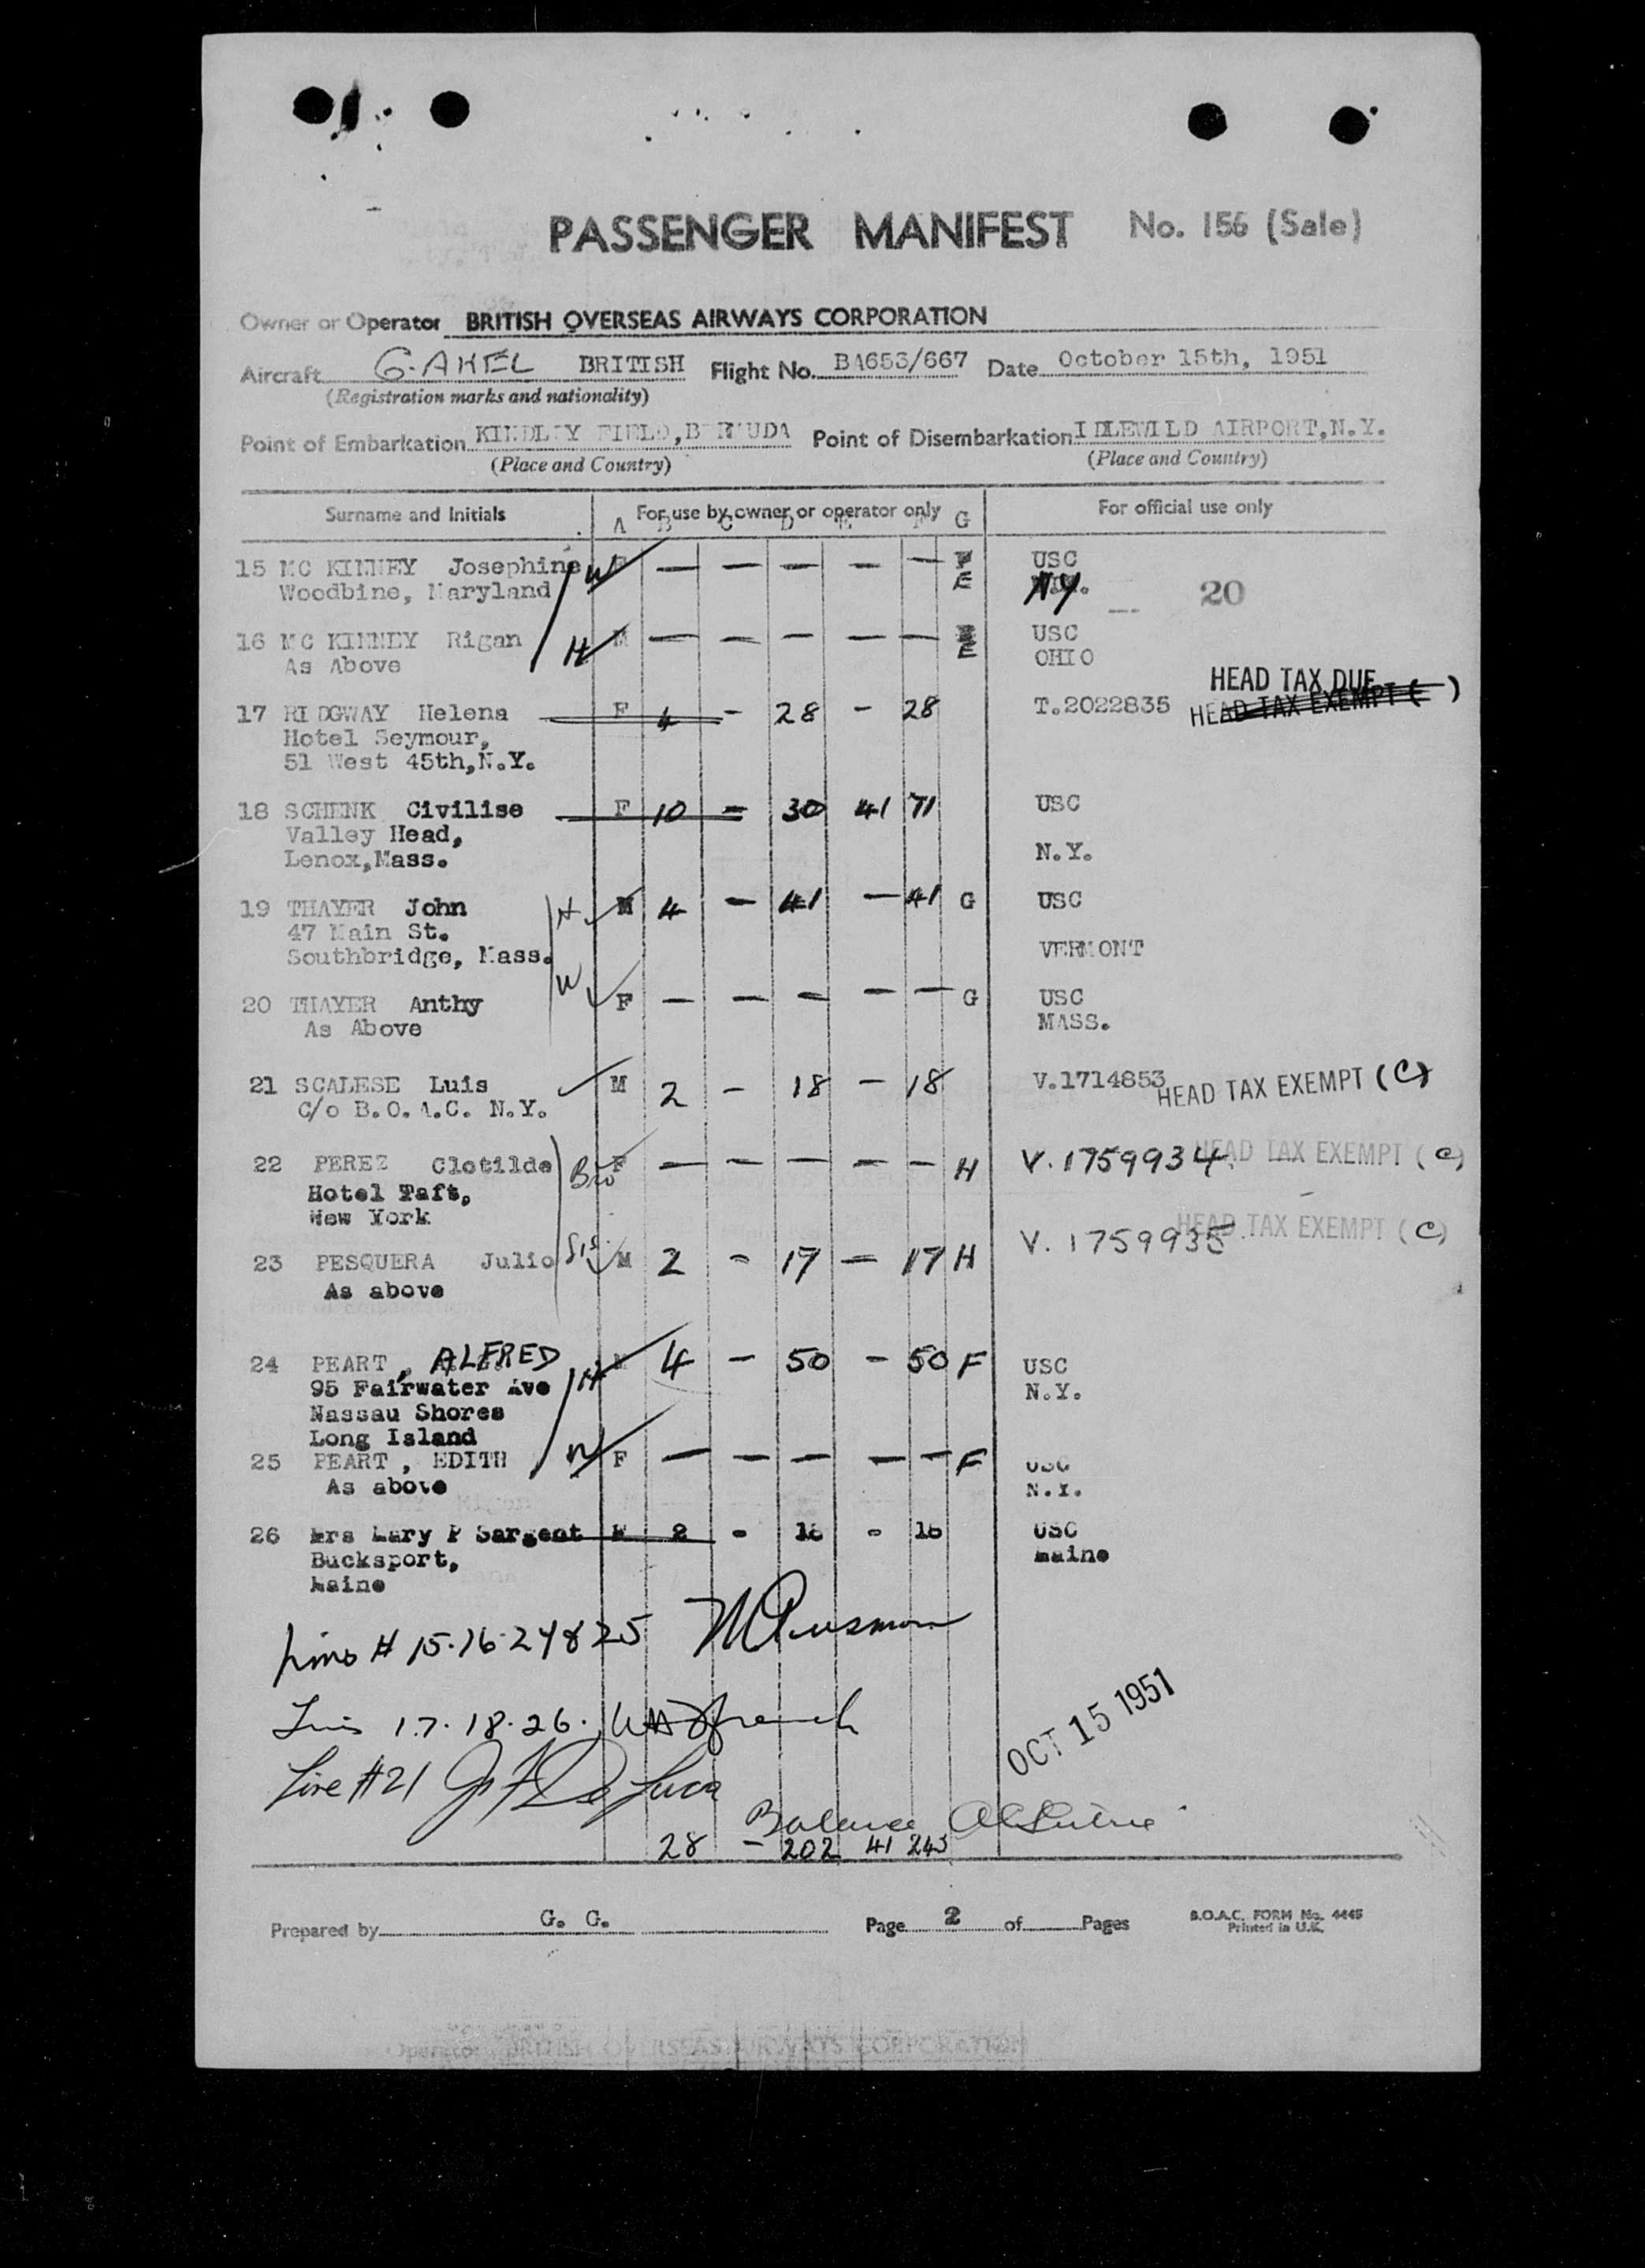 PASSENGER MANIFEST No. 156 (Sale)
Owner or Operator BRITISH OVERSEAS AIRWAYS CORPORATION
Aircraft G-AKEL BRITISH Flight No. BA653/667 Date October 15th, 1951
(Registration marks and nationality)
Point of Embarkation KINDLEY FIELD, BERMUDA Point of Disembarkation IDLEWILD AIRPORT, N.Y.
(Place and Country) (Place and Country)
Surname and Initials For use by owner or operator only For official use only
A B C D E F G
15 MC KINNEY Josephine W F — — — — — E USC
Woodbine, Maryland N.Y. 20
16 MC KINNEY Rigan H M — — — — — E USC
As Above OHIO
HEAD TAX DUE
17 RIDGWAY Helena F 4 - 28 - 28 T.2022835 HEAD TAX EXEMPT ( )
Hotel Seymour,
51 West 45th, N.Y.
18 SCHENK Civilise F 10 - 30 41 71 USC
Valley Head,
Lenox, Mass. N.Y.
19 THAYER John H M 4 - 41 - 41 G USC
47 Main St.
Southbridge, Mass. VERMONT
20 THAYER Anthy W F — — — — — G USC
As Above MASS.
21 SCALESE Luis M 2 - 18 - 18 V.1714853 HEAD TAX EXEMPT (C)
C/o B.O.A.C. N.Y.
22 PEREZ Clotilde Bro F — — — — — H V.1759934 HEAD TAX EXEMPT (C)
Hotel Taft,
New York
23 PESQUERA Julio Sis. M 2 - 17 - 17 H V.1759935 HEAD TAX EXEMPT (C)
As above
24 PEART, ALFRED H 4 - 50 - 50 F USC
95 Fairwater Ave N.Y.
Nassau Shores
Long Island
25 PEART, EDITH W F — — — — — F USC
As above N.Y.
26 Mrs Mary P Sargent F 2 - 18 - 18 USC
Bucksport, Maine
Maine
# 15-16-24 & 25
17.18.26. French
Line #21 De Luca
OCT 15 1951
Balance
28 - 202 41 243
Prepared by G. G. Page 2 of Pages B.O.A.C. FORM No. 4445
Printed in U.K.